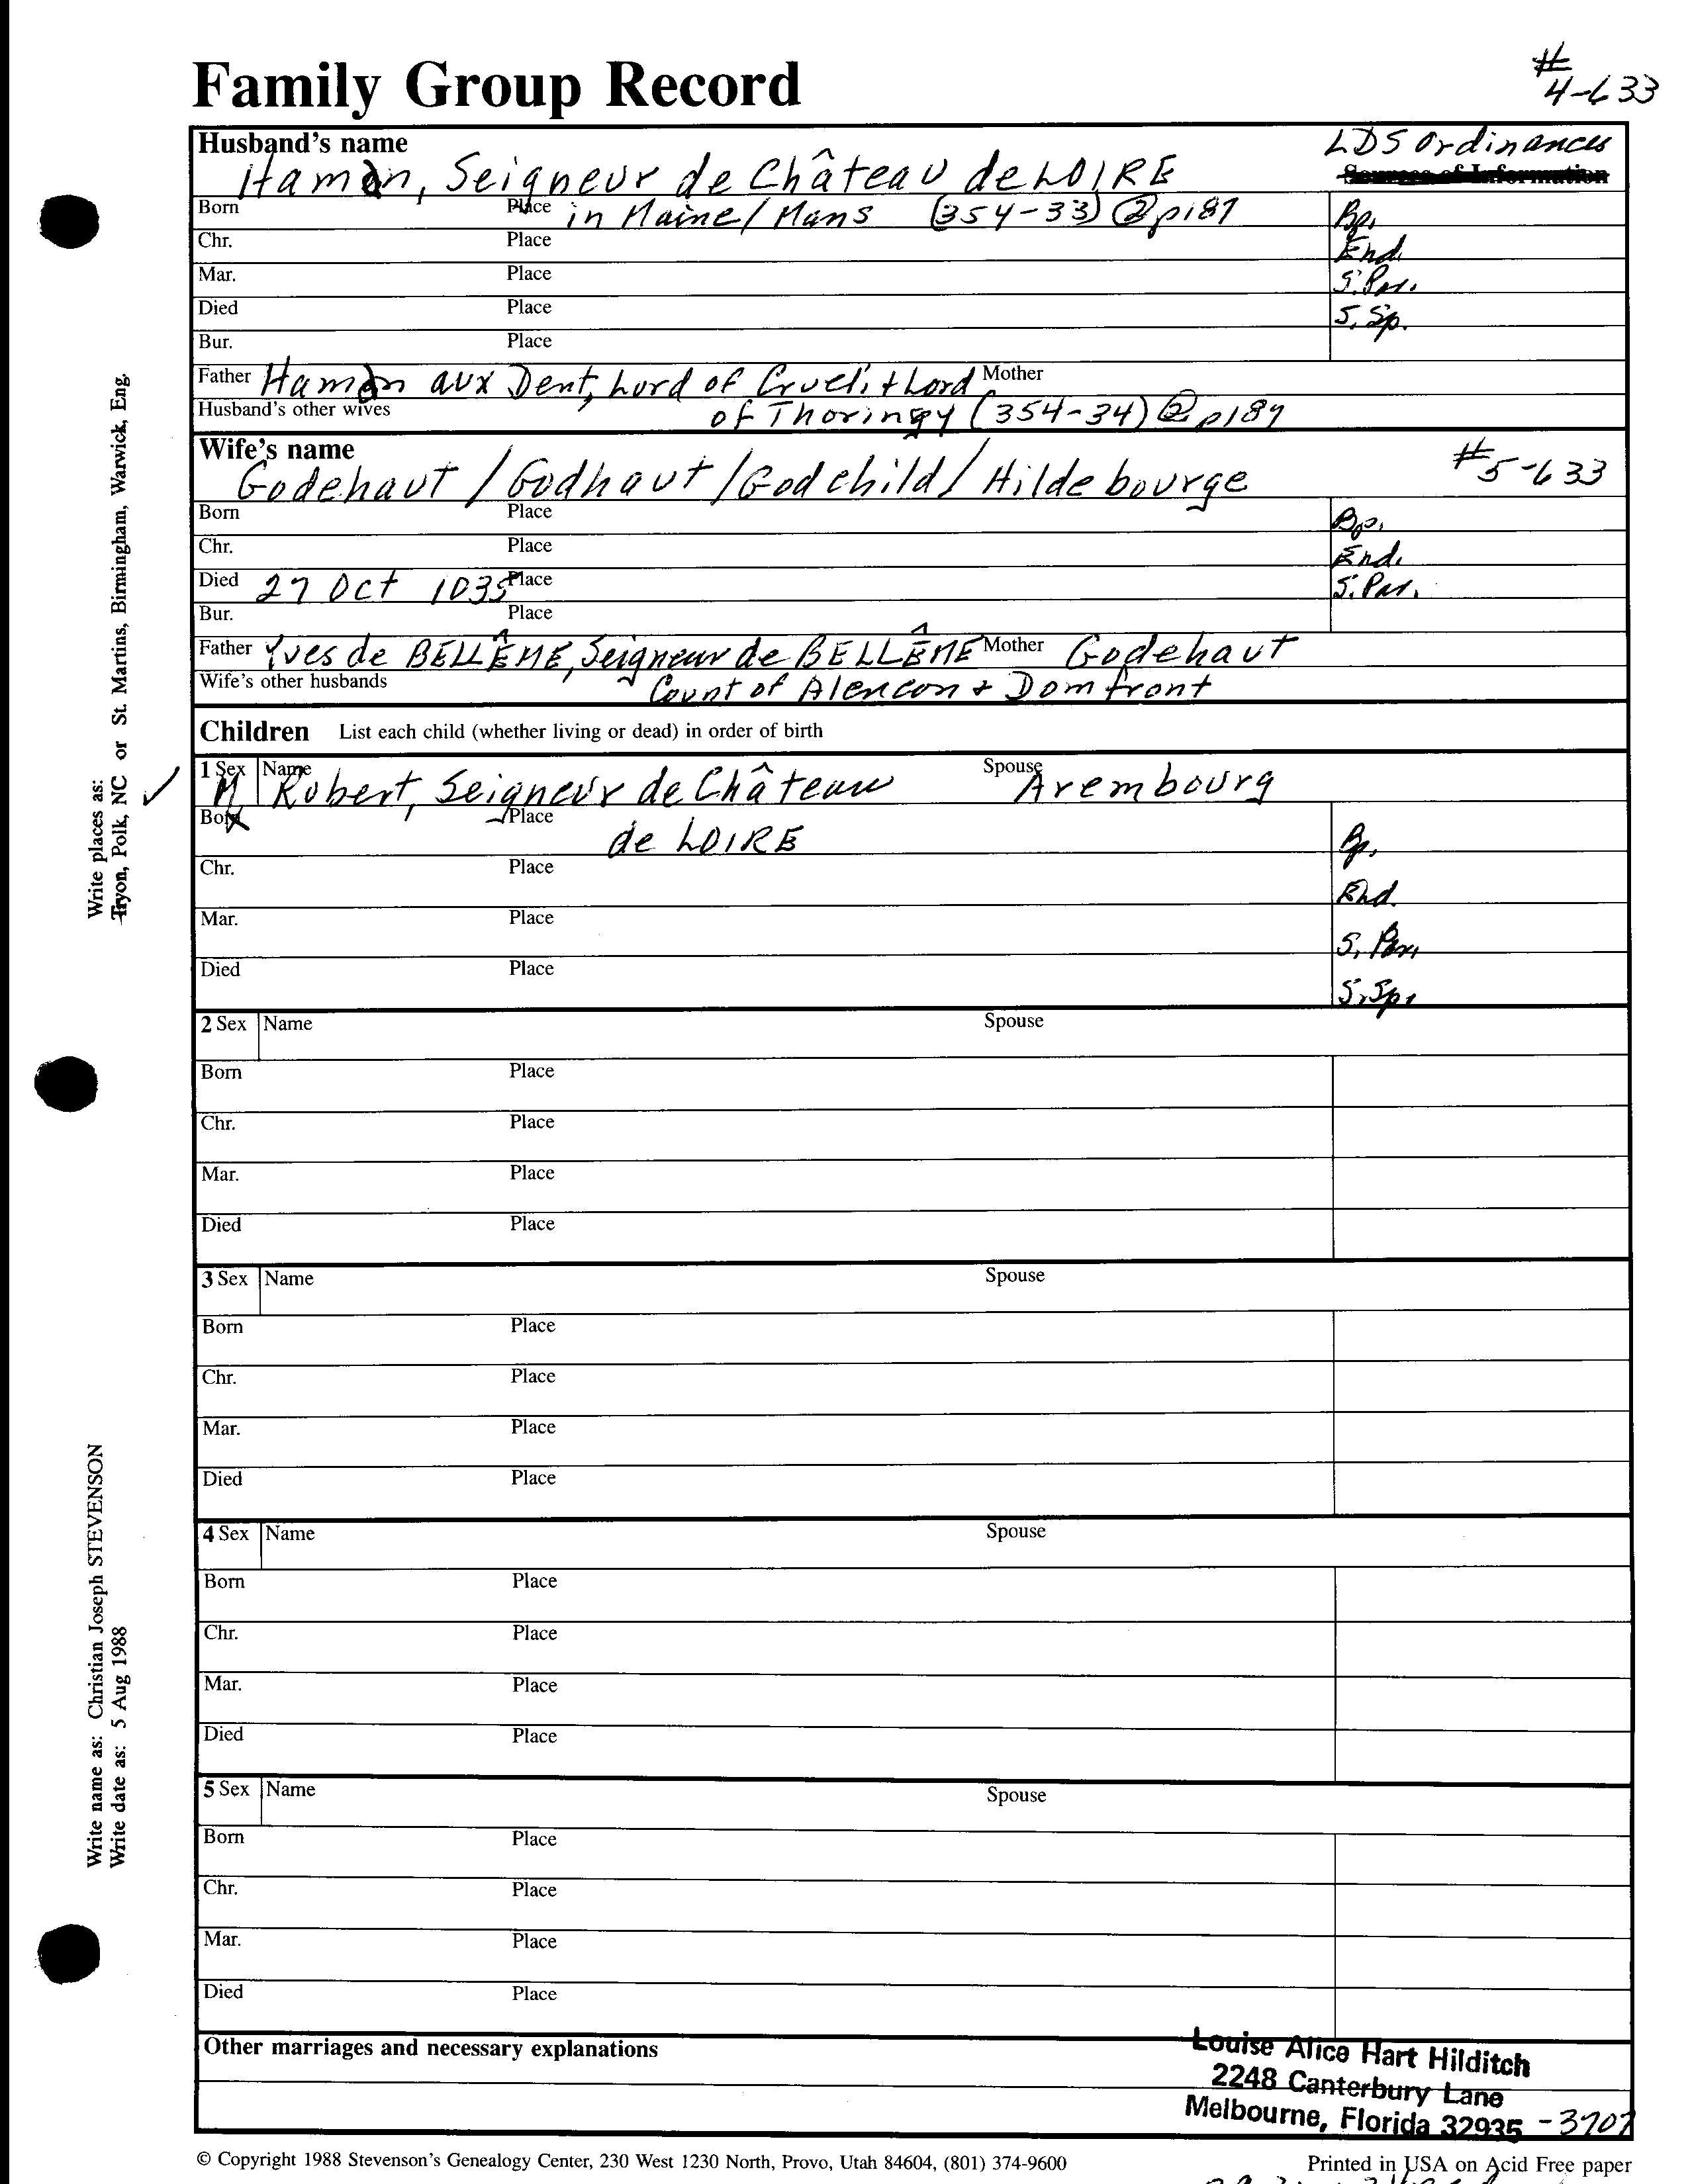 Family Group Record
#
4-633
Husband's name
LDS Ordinances
Hamon, Seigneur de Château de LOIRE
Sources of Information
Born Place in Maine/Mans (354-33) @ p187 Bp.
Chr. Place End.
Mar. Place S. Par.
Died Place S. Sp.
Bur. Place
Father Hamon aux Dent, Lord of Crueli + Lord Mother
Husband's other wives of Thoringy (354-34) @ p187
Wife's name
Godehaut / Godhaut / Godchild / Hildebourge #5-633
Born Place Bp.
Chr. Place End.
Died 27 Oct 1035 Place S. Par.
Bur. Place
Father Yves de BELLÊME, Seigneur de BELLÊME Mother Godehaut
Wife's other husbands Count of Alencon + Domfront
Children List each child (whether living or dead) in order of birth
1 Sex Name Spouse
M Robert, Seigneur de Château Arembourg
Born Place de LOIRE Bp.
Chr. Place End.
Mar. Place S. Par.
Died Place S. Sp.
2 Sex Name Spouse
Born Place
Chr. Place
Mar. Place
Died Place
3 Sex Name Spouse
Born Place
Chr. Place
Mar. Place
Died Place
4 Sex Name Spouse
Born Place
Chr. Place
Mar. Place
Died Place
5 Sex Name Spouse
Born Place
Chr. Place
Mar. Place
Died Place
Other marriages and necessary explanations
Louise Alice Hart Hilditch
2248 Canterbury Lane
Melbourne, Florida 32935 -3707
© Copyright 1988 Stevenson's Genealogy Center, 230 West 1230 North, Provo, Utah 84604, (801) 374-9600
Printed in USA on Acid Free paper
Write places as:
Tryon, Polk, NC or St. Martins, Birmingham, Warwick, Eng.
Write name as: Christian Joseph STEVENSON
Write date as: 5 Aug 1988